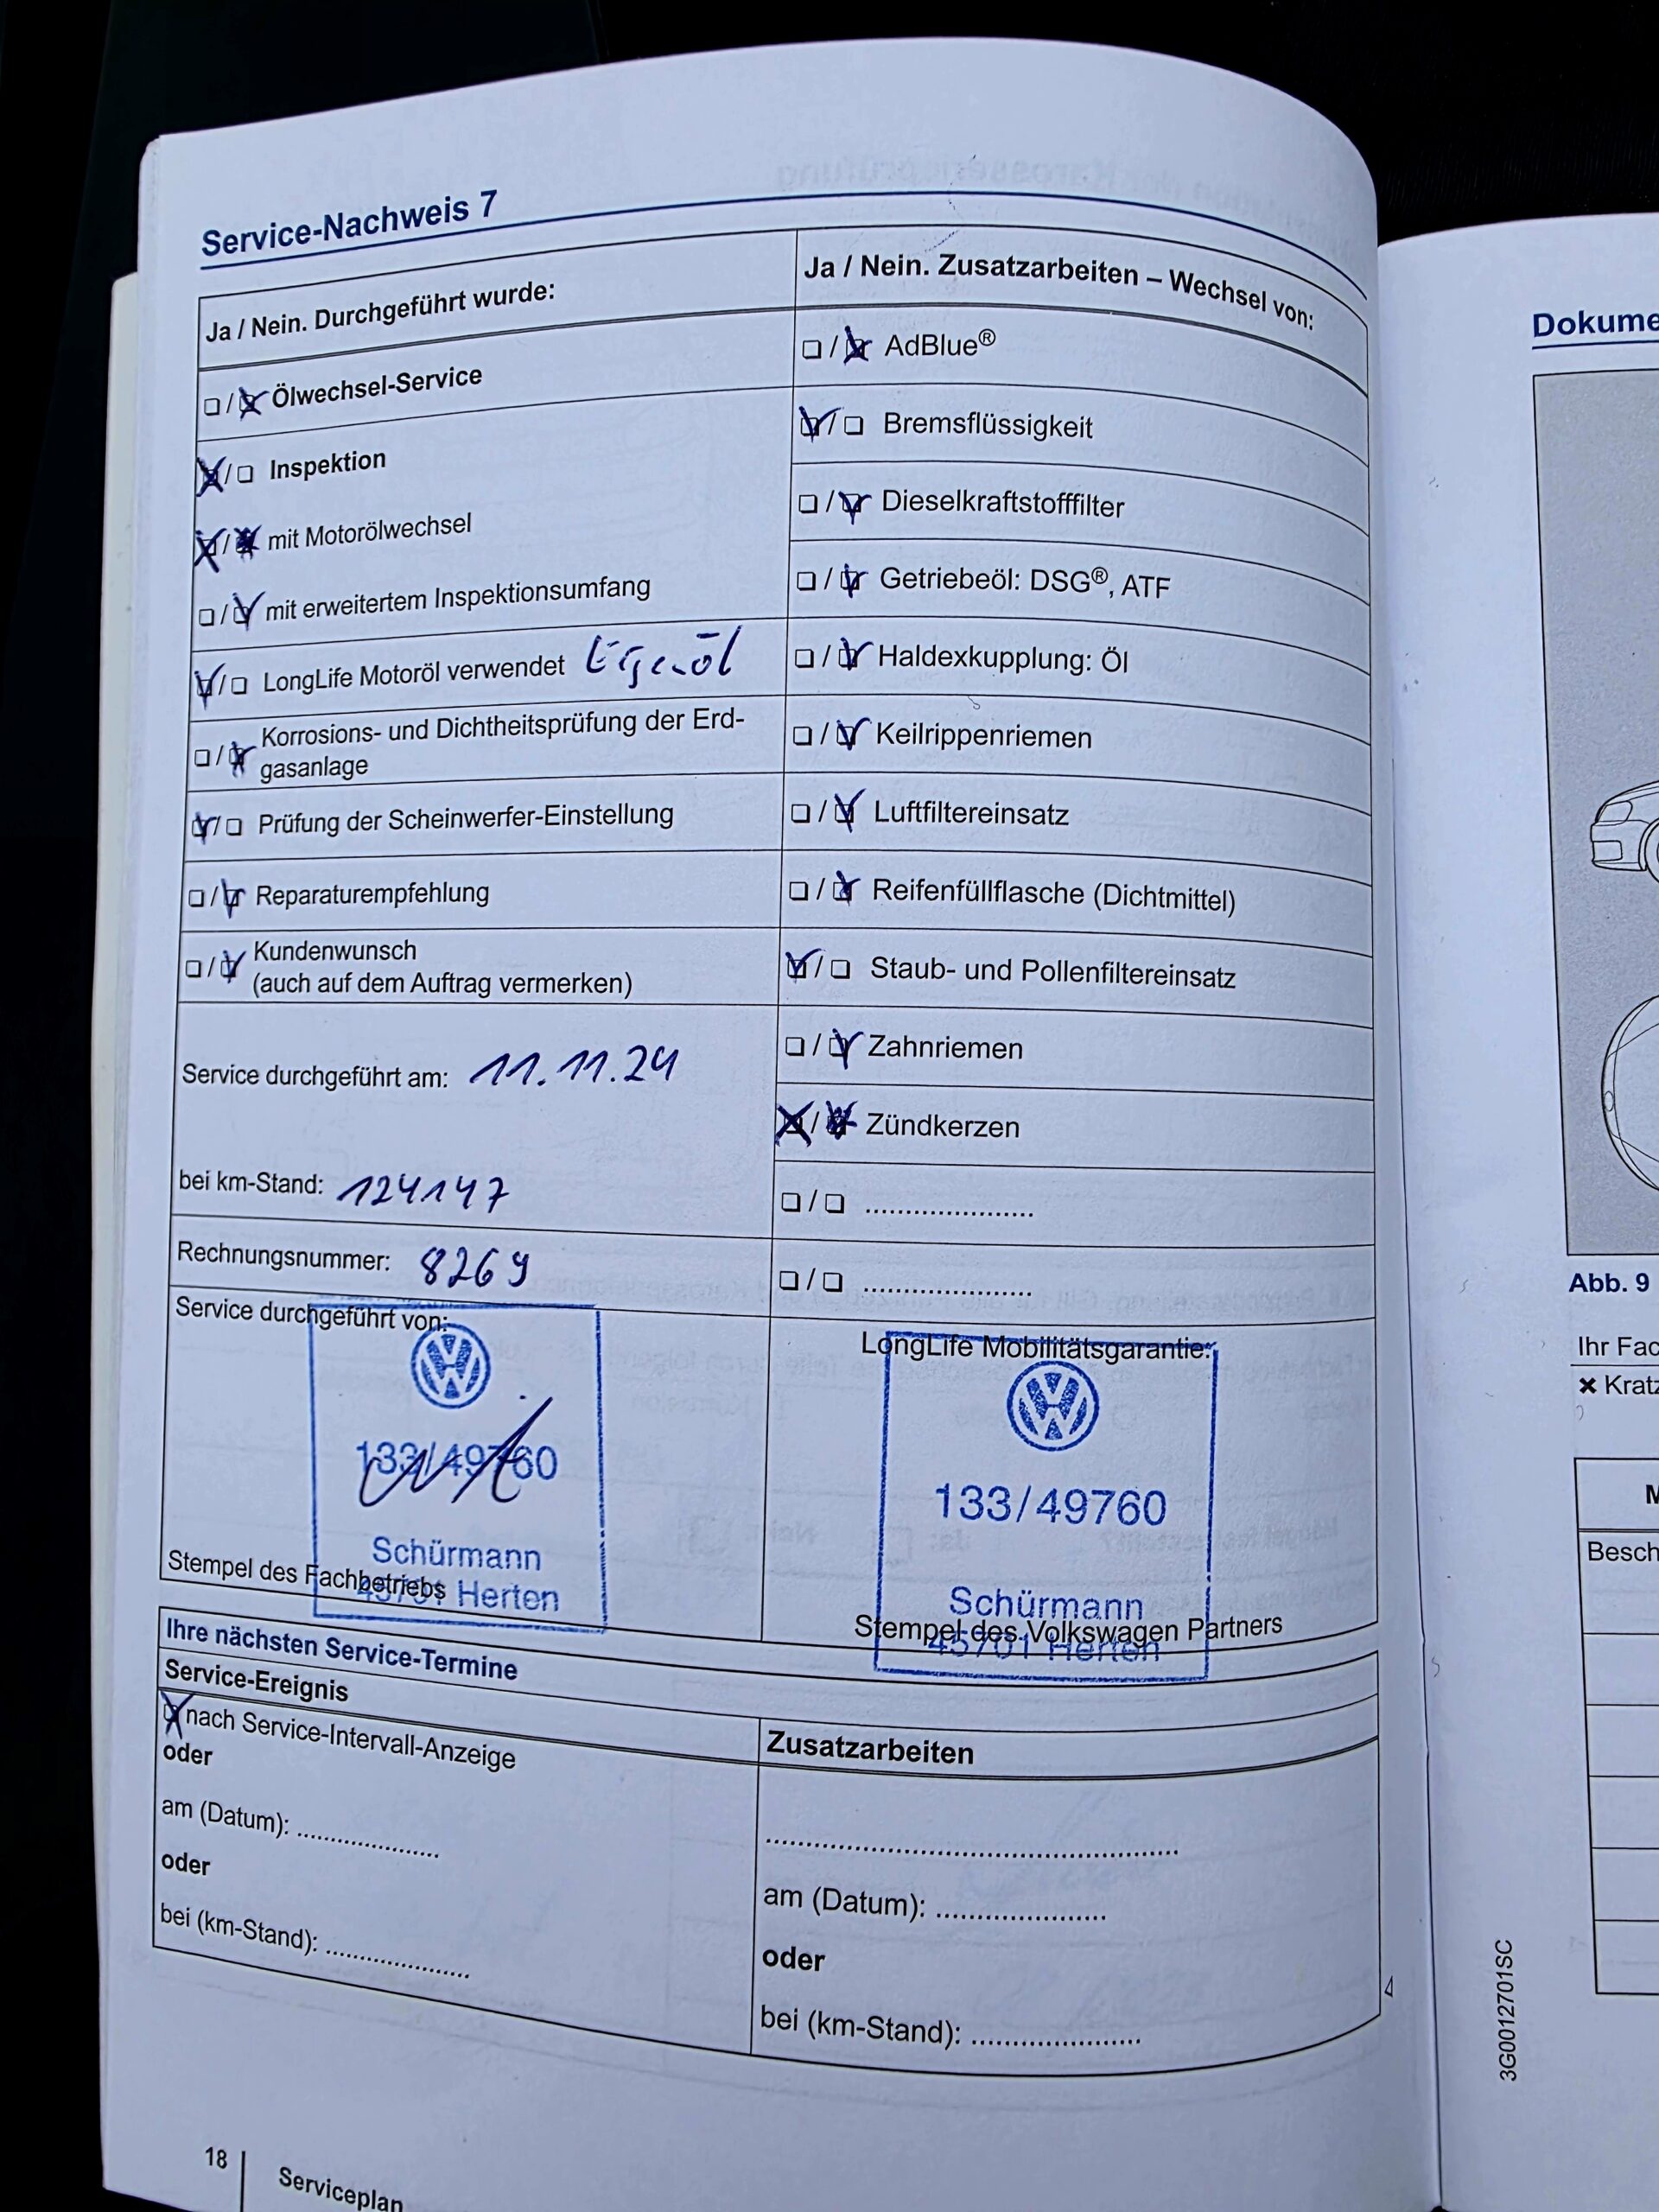 Service-Nachweis 7
Ja / Nein. Durchgeführt wurde:
❏ / ❏ Ölwechsel-Service
❏ / ❏ Inspektion
❏ / ❏ mit Motorölwechsel
❏ / ❏ mit erweitertem Inspektionsumfang
❏ / ❏ LongLife Motoröl verwendet
❏ / ❏ Korrosions- und Dichtheitsprüfung der Erd-
gasanlage
❏ / ❏ Prüfung der Scheinwerfer-Einstellung
❏ / ❏ Reparaturempfehlung
❏ / ❏ Kundenwunsch
(auch auf dem Auftrag vermerken)
Service durchgeführt am: 11.11.24
bei km-Stand: 124147
Rechnungsnummer: 8269
Service durchgeführt von:
133/49760
Schürmann
45701 Herten
Stempel des Fachbetriebs
Ja / Nein. Zusatzarbeiten – Wechsel von:
❏ / ❏ AdBlue®
❏ / ❏ Bremsflüssigkeit
❏ / ❏ Dieselkraftstofffilter
❏ / ❏ Getriebeöl: DSG®, ATF
❏ / ❏ Haldexkupplung: Öl
❏ / ❏ Keilrippenriemen
❏ / ❏ Luftfiltereinsatz
❏ / ❏ Reifenfüllflasche (Dichtmittel)
❏ / ❏ Staub- und Pollenfiltereinsatz
❏ / ❏ Zahnriemen
❏ / ❏ Zündkerzen
❏ / ❏ ......................
❏ / ❏ ......................
LongLife Mobilitätsgarantie:
133/49760
Schürmann
45701 Herten
Stempel des Volkswagen Partners
Ihre nächsten Service-Termine
Service-Ereignis
❏ nach Service-Intervall-Anzeige
oder
am (Datum): ....................
oder
bei (km-Stand): ....................
Zusatzarbeiten
......................................................
am (Datum): ......................
oder
bei (km-Stand): ......................
18
Serviceplan
Dokume
Abb. 9
Ihr Fac
✖ Kratz
M
Besch
3G0012701SC